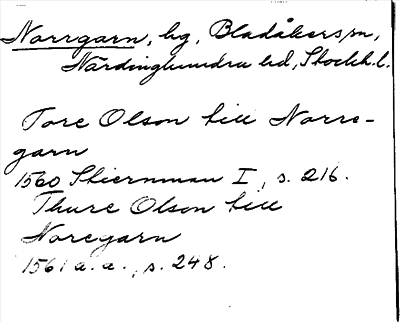 Norrgarn, hg, Bladåkers sn,
Närdinghundra hd, Stockh. l.
Tore Olson till Norre-
garn
1560 Stiernman I, s. 216.
Thure Olson till
Noregarn
1561 a. a., s. 248.